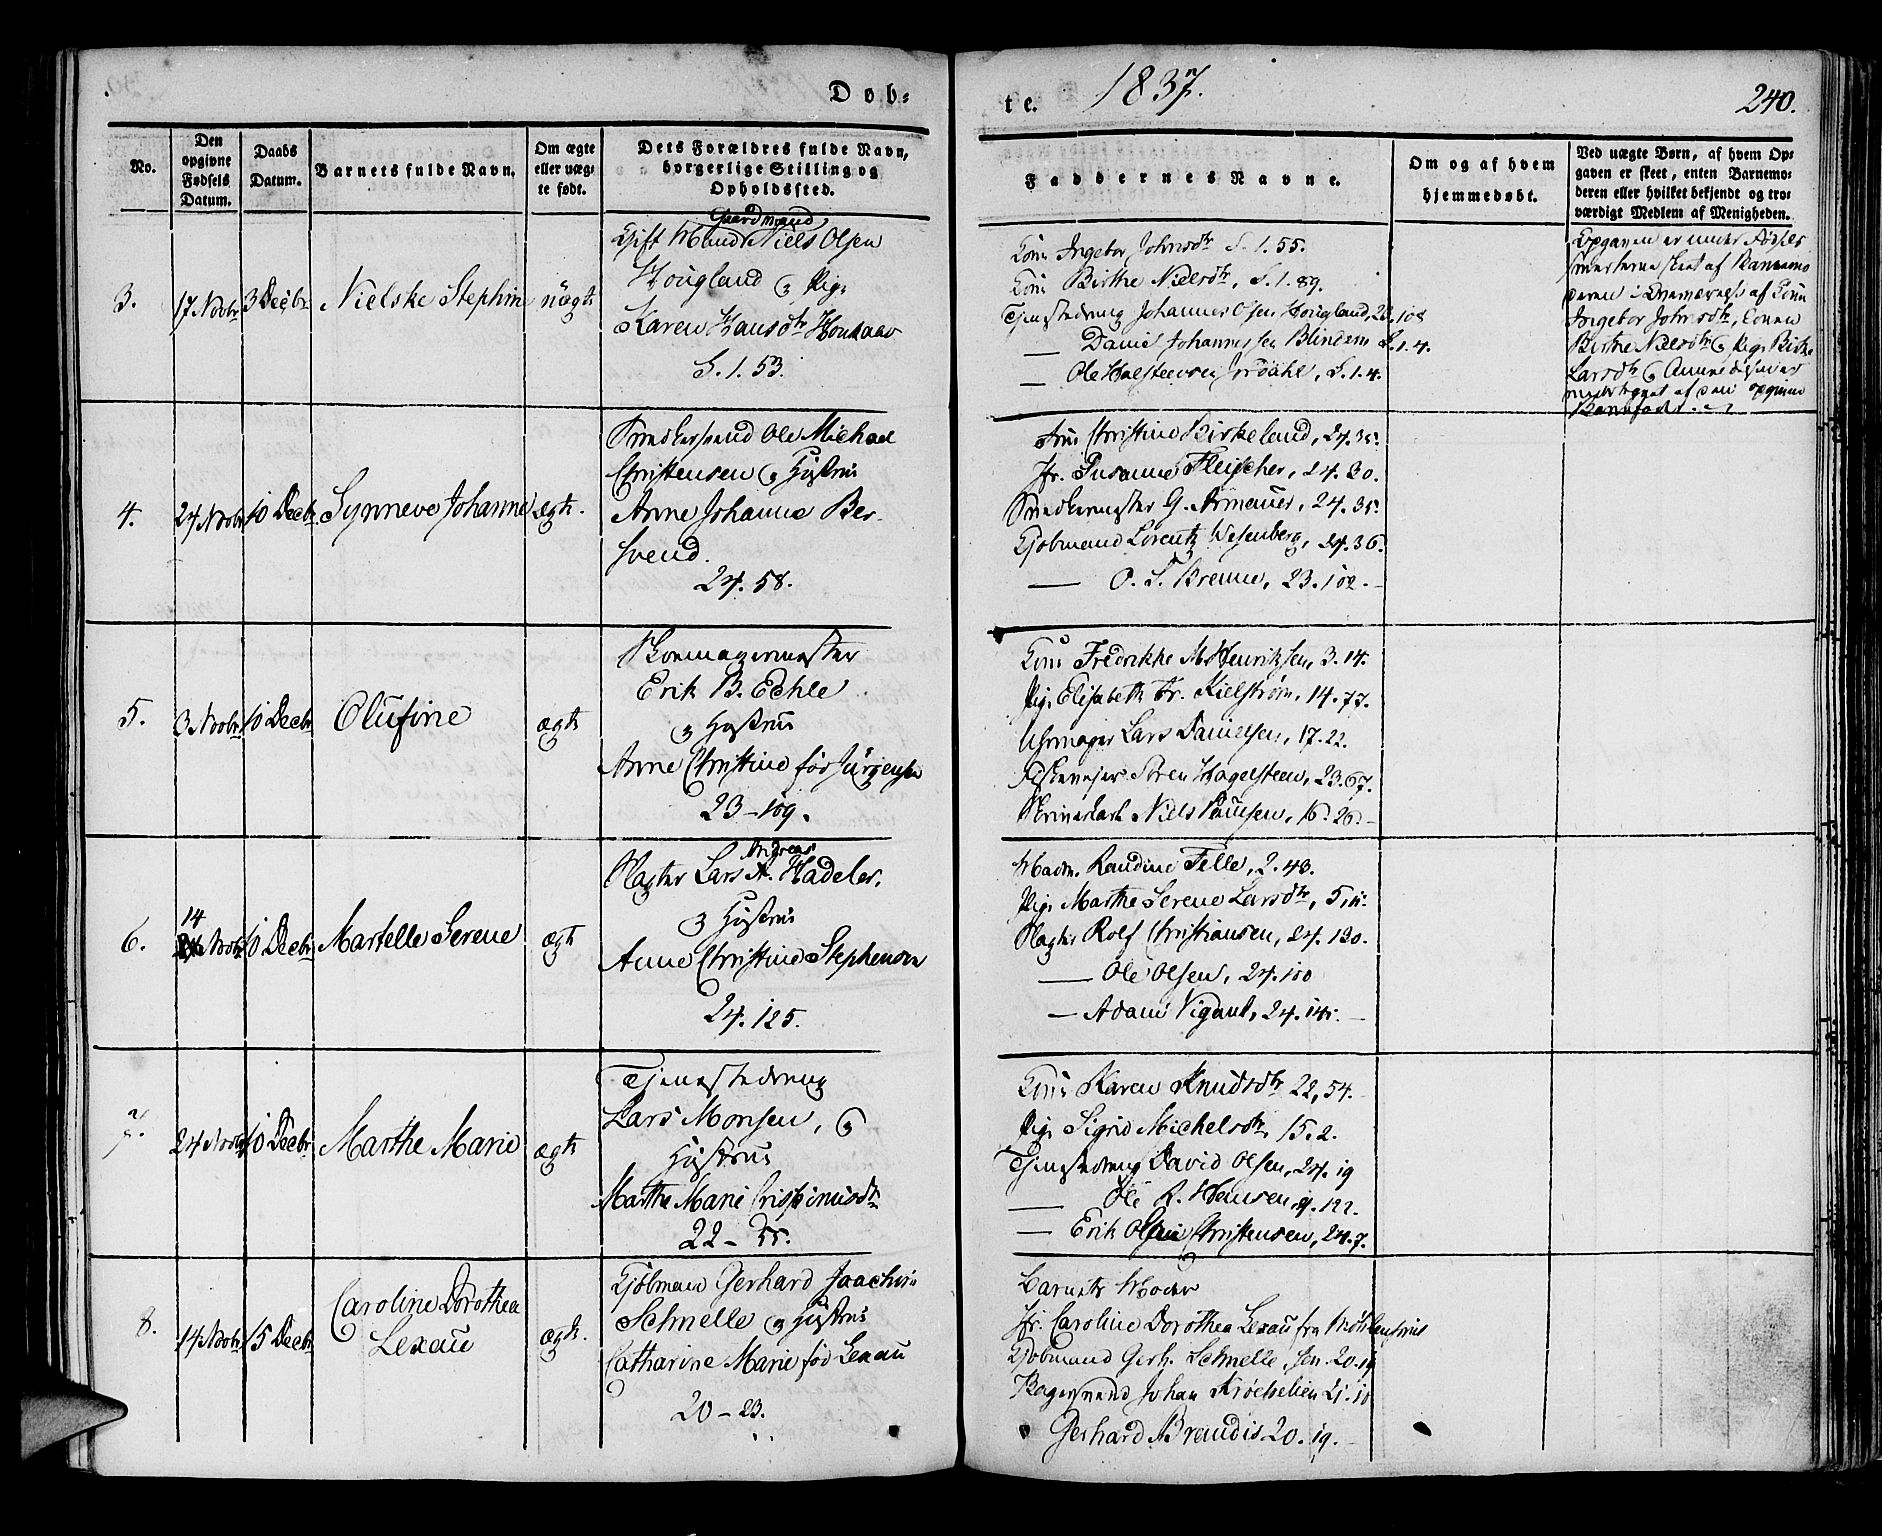 Døb-
te.
1837.
240.
No.
Den opgivne Fødsels Datum.
Daabs Datum.
Barnets fulde Navn.
Om ægte eller uægte født.
Dets Forældres fulde Navn, borgerlige Stilling og Opholdssted.
Faddernes Navne.
Om og af hvem hjemmedøbt.
Ved uægte Børn, af hvem Opgaven er skeet, enten Barnemoderen eller hvilket bekjendt og troværdigt Medlem af Menigheden.
3.
17 Novbr
3 Decbr
Nielske Stephine
uægte
Gaardmand
Gift Mand Niels Olsen
Hougland og Pige
Karen Hansdtr
S. 1. 53.
Kone Ingebor Johnsdtr S. 1. 55.
Kone Birthe Nielsdtr, S. 1. 89.
Tjenestedreng Johannes Olsen Hougland, 23. 108
— Johannessen Blindem S. 1. 4.
— Ole S. 1. 4.
Opgaven er under Fødsels
smerterne skeet af Barnemo
deren i Overværelse af Kone
Ingebor Johnsdtr, Konen
Birthe Nielsdtr og Pige Birthe
Larsdtr og
af den opgivne
Barnefader.
4.
24 Novbr
10 Decbr
Synneve Johanne
ægte.
Snedkersvend Ole Michael
Christensen og Hustrue
Anne Johanne Ber-
svend.
24. 58.
Frue Christine Birkeland, 24. 35.
Jfr. Susanne Fleischer, 24. 30.
Snedkermester G. Armauer, 24. 35.
Kjøbmand Lorentz Wesenberg, 24. 36.
— O. S. Brenne, 23. 102.
5.
3 Novbr
10 Decbr
Olufine
ægte
Skoemagermester
Erik B. Echle
og Hustrue
Anne Christine fød Jürgensen
23 - 109.
Kone Fredrikke M. Henriksen, 3. 14.
Pige Elisabeth Fr. Kielstrøm, 14. 77.
Uhrmager Lars Danielsen, 17. 22.
Søren Hagelsteen, 23. 67.
Niels Paulsen, 16. 26.
6.
14
Novbr
10 Decbr
Martelle Serene
ægte
Andreas
Slagter Lars A. Hadeler.
og Hustrue
Anne Christine Stephensen
24. 125.
Madm. Randine Felle, 2. 43.
Pige Marthe Serene Larsdtr, 5,
Slagter Rolf Christiansen, 24. 130.
— Ole Olsen, 24. 100
— Adam Vigant, 24.
7.
24 Novbr
10 Decbr
Marthe Marie
ægte
Tjenestedreng
Lars Monsen, og
Hustrue
Marthe Marie Crispinusdtr
22 - 55.
Kone Karen Knudsdtr 22, 54.
Pige Sigrid Michelsdtr, 15. 2.
Tjenestedreng David Olsen, 24. 19
— Ole R. Hansen, 9. 122.
— Erik Christensen, 24. 7.
8.
14 Novbr
15 Decbr
Caroline Dorothea
Lexau
ægte.
Kjøbmand Gerhard Joachim
Schmelle og Hustrue
Catharine Marie fød Lexau
20 - 23.
Barnets Moder
Jfr. Caroline Dorothea Lexau fra
Kjøbmand Gerh. Schmelle, sen. 20. 19
Bagersvend Johan 21. 10
Gerhard Brandis 20. 19.